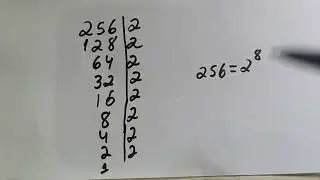 256 | 2
128 | 2
64 | 2
32 | 2
16 | 2
8 | 2
4 | 2
2 | 2
1
256 = 2⁸